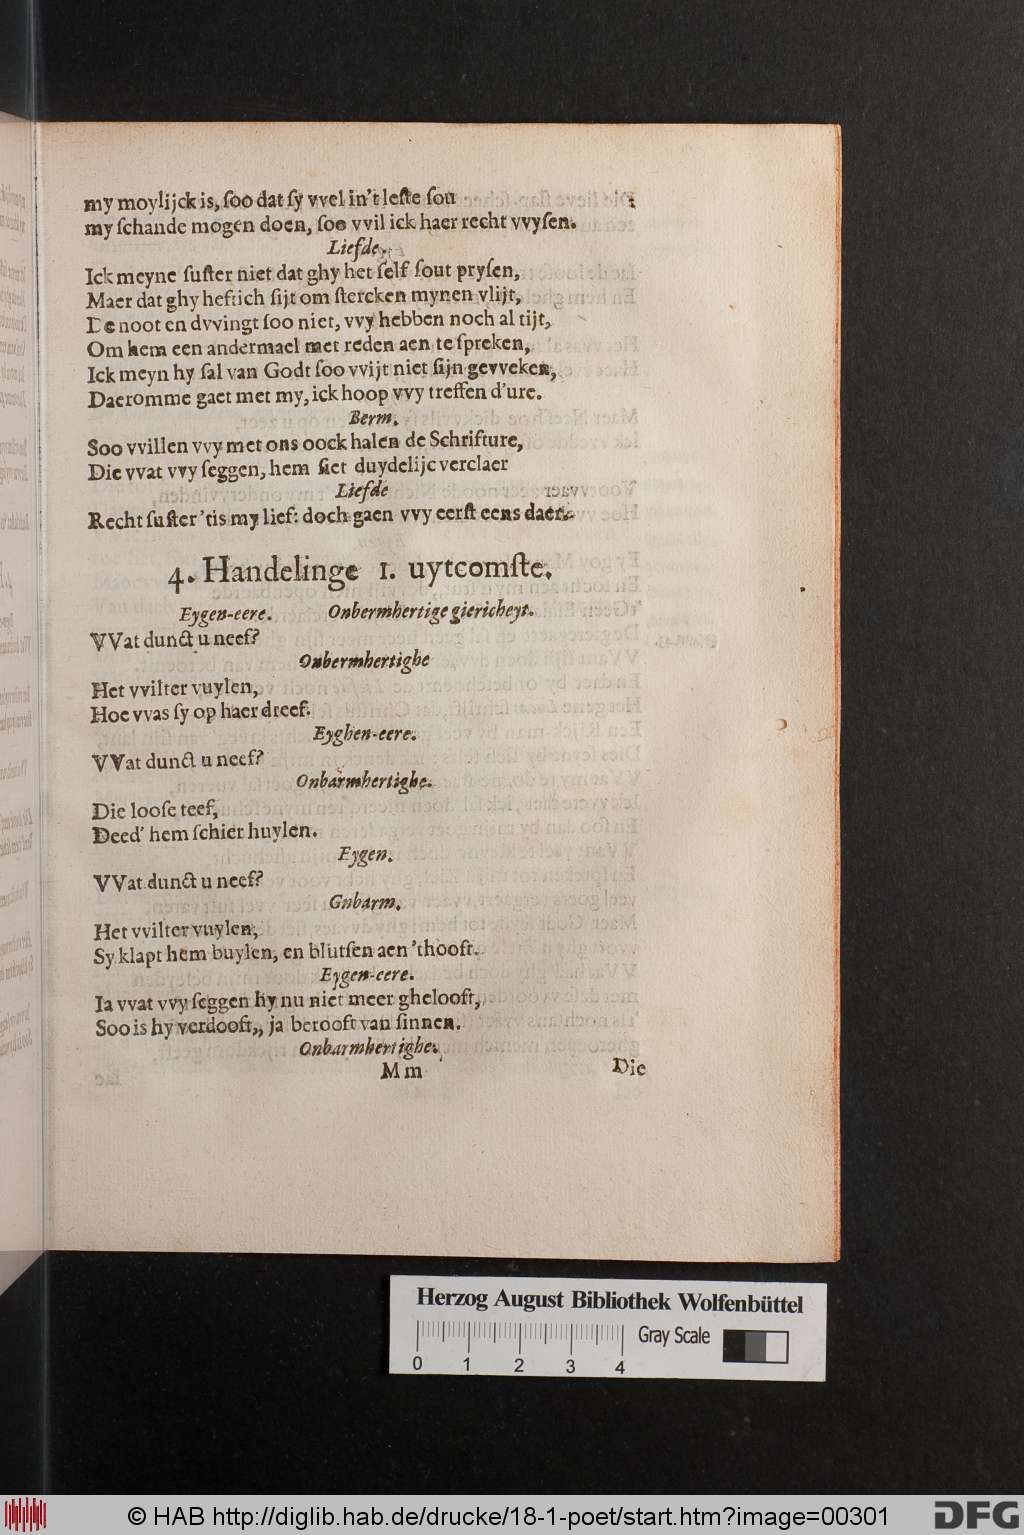 my moylijck is, ſoo dat ſy vvel in't leſte ſou
my ſchande mogen doen, ſoe vvil ick haer recht vvyſen.
Liefde.
Ick meyne ſuſter niet dat ghy het ſelf ſout pryſen,
Maer dat ghy heftich ſijt om ſtercken mynen vlijt,
De noot en dvvingt ſoo niet, vvy hebben noch al tijt,
Om hem een andermael met reden aen te ſpreken,
Ick meyn hy ſal van Godt ſoo vvijt niet ſijn gevveken,
Daeromme gaet met my, ick hoop vvy treffen d'ure.
Berm.
Soo vvillen vvy met ons oock halen de Schrifture,
Die vvat vvy ſeggen, hem ſiet duydelijc verclaer
Liefde
Recht ſuſter 'tis my lief: doch gaen vvy eerſt eens daer.
4. Handelinge 1. uytcomſte.
Eygen-eere. Onbermhertige giericheyt.
VVat dunct u neef?
Onbermhertighe
Het vvilter vuylen,
Hoe vvas ſy op haer dreef.
Eyghen-eere.
VVat dunct u neef?
Onbarmhertighe.
Die looſe teef,
Deed' hem ſchier huylen.
Eygen.
VVat dunct u neef?
Gnbarm.
Het vvilter vuylen,
Sy klapt hem buylen, en blutſen aen 'thooft.
Eygen-eere.
Ia vvat vvy ſeggen hy nu niet meer ghelooft,
Soo is hy verdooft,, ja berooft van ſinnen.
Onbarmhertighe.
Mm Die
Herzog August Bibliothek Wolfenbüttel
Gray Scale
0 1 2 3 4
© HAB http://diglib.hab.de/drucke/18-1-poet/start.htm?image=00301
DFG